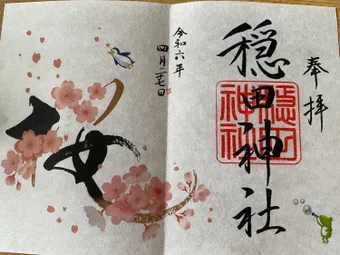 奉拝
穏田神社
穏田神社
令和六年
四月二十七日
桜